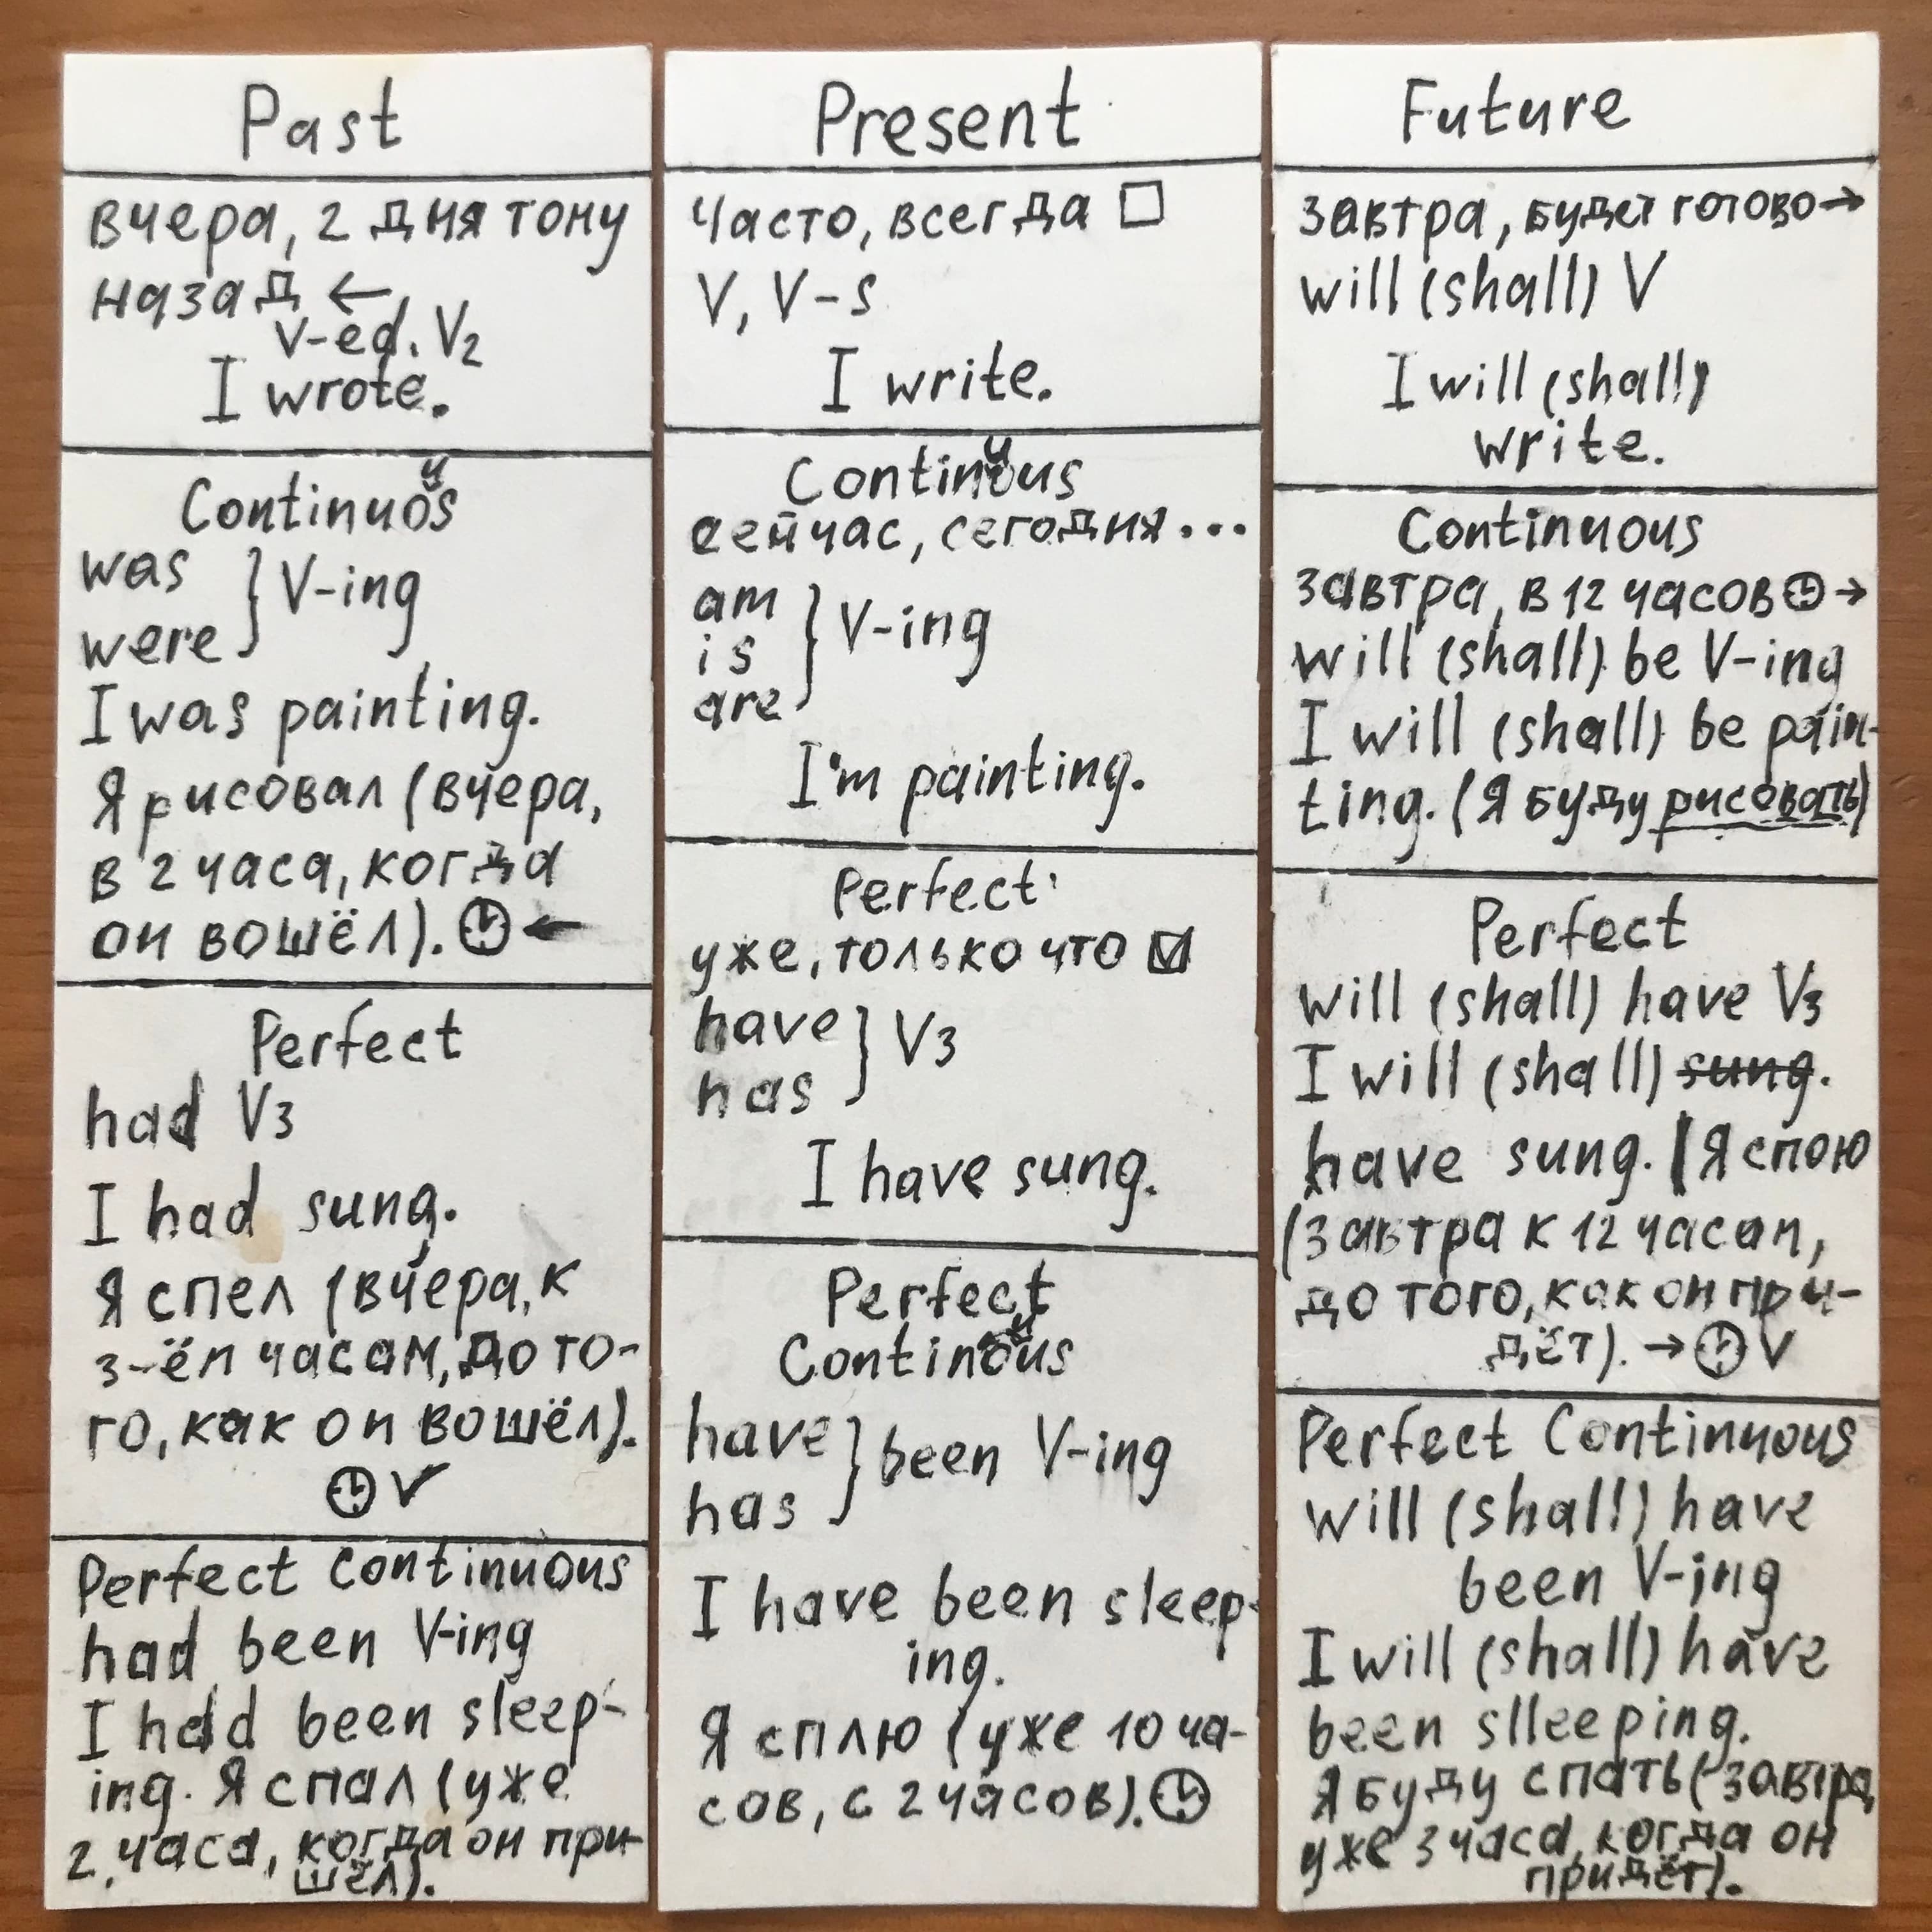 Past
вчера, 2 дня тому
назад ←
V-ed. V2
I wrote.
Continuous
was
were } V-ing
I was painting.
Я рисовал (вчера,
в 2 часа, когда
он вошёл). ←
Perfect
had V3
I had sung.
Я спел (вчера, к
3-ём часам, до то-
го, как он вошёл).
✓
Perfect Continuous
had been V-ing
I had been sleep-
ing. Я спал (уже
2 часа, когда он при-
шёл).
Present
часто, всегда □
V, V-s
I write.
Continuous
сейчас, сегодня...
am
is } V-ing
are
I'm painting.
Perfect
уже, только что ☑
have
has } V3
I have sung.
Perfect
Continuous
have
has } been V-ing
I have been sleep-
ing.
Я сплю (уже 10 ча-
сов, с 2 часов).
Future
завтра, будет готово →
will (shall) V
I will (shall)
write.
Continuous
завтра, в 12 часов →
will (shall) be V-ing
I will (shall) be pain-
ting. (Я буду рисовать)
Perfect
will (shall) have V3
I will (shall) sung.
have sung. (Я спою
(завтра к 12 часам,
до того, как он при-
дёт). → V
Perfect Continuous
will (shall) have
been V-ing
I will (shall) have
been slleeping.
Я буду спать (завтра,
уже 3 часа, когда он
придёт).